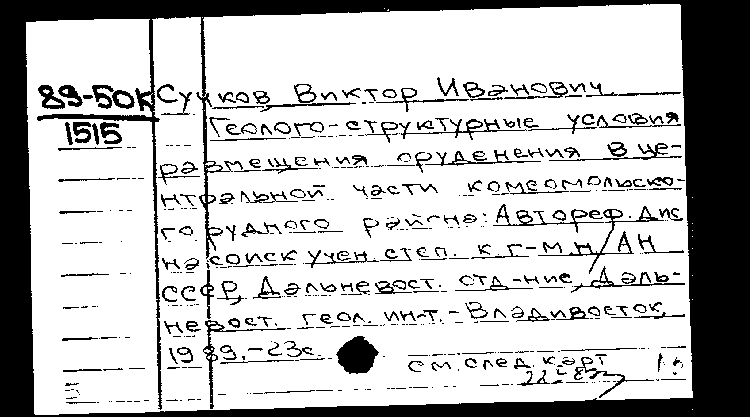 89-50К Сучков Виктор Иванович
1515 Геолого-структурные условия
размещения оруденения в це-
нтральной части комсомольско-
го рудного района: Автореф. дис
на соиск учен. степ. к. г-м.н/АН
СССР, Дальневост. отд-ние, Даль-
невост. геол. ин-т. - Владивосток,
1989. - 23с.
см. след. карт